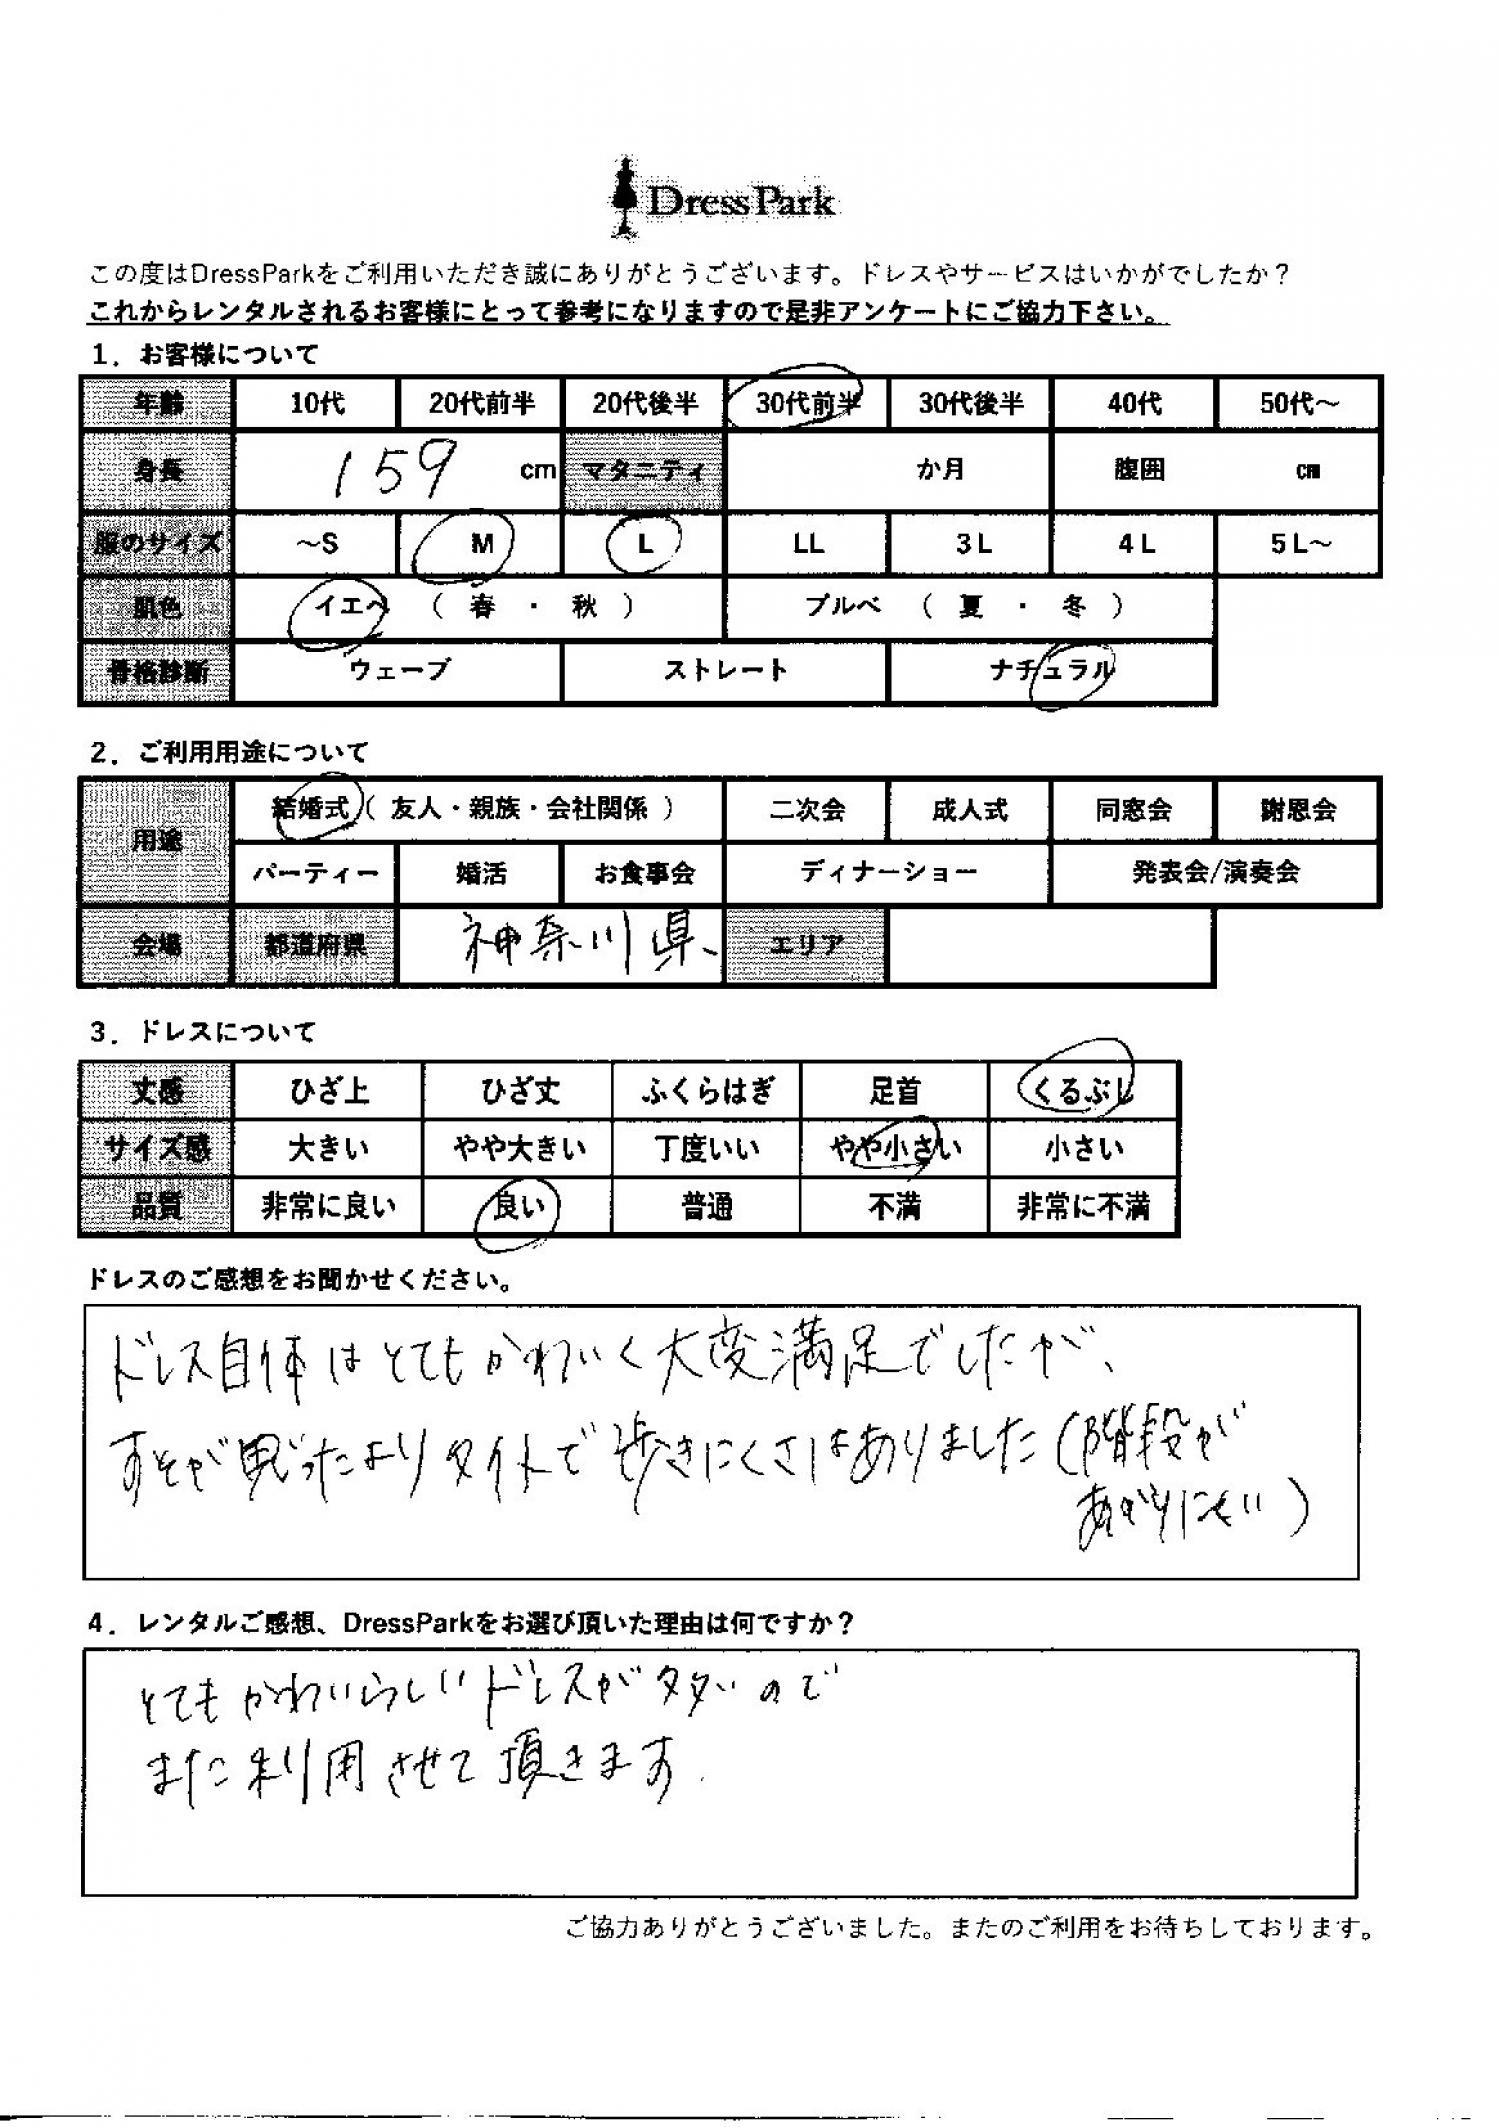 DressPark
この度はDressParkをご利用いただき誠にありがとうございます。ドレスやサービスはいかがでしたか？
これからレンタルされるお客様にとって参考になりますので是非アンケートにご協力下さい。
1．お客様について
年齢 10代 20代前半 20代後半 30代前半 30代後半 40代 50代～
身長 159 cm マタニティ か月 腹囲 cm
服のサイズ ～S M L LL 3L 4L 5L～
肌色 イエベ （ 春 ・ 秋 ） ブルベ （ 夏 ・ 冬 ）
骨格診断 ウェーブ ストレート ナチュラル
2．ご利用用途について
用途 結婚式（ 友人・親族・会社関係 ） 二次会 成人式 同窓会 謝恩会
パーティー 婚活 お食事会 ディナーショー 発表会/演奏会
会場 都道府県 神奈川県 エリア
3．ドレスについて
丈感 ひざ上 ひざ丈 ふくらはぎ 足首 くるぶし
サイズ感 大きい やや大きい 丁度いい やや小さい 小さい
品質 非常に良い 良い 普通 不満 非常に不満
ドレスのご感想をお聞かせください。
ドレス自体はとてもかわいく大変満足でしたが、
すそが思ったよりタイトで歩きにくさはありました（階段が
あがりにくい）
4．レンタルご感想、DressParkをお選び頂いた理由は何ですか？
とてもかわいらしいドレスが多いので
また利用させて頂きます.
ご協力ありがとうございました。またのご利用をお待ちしております。